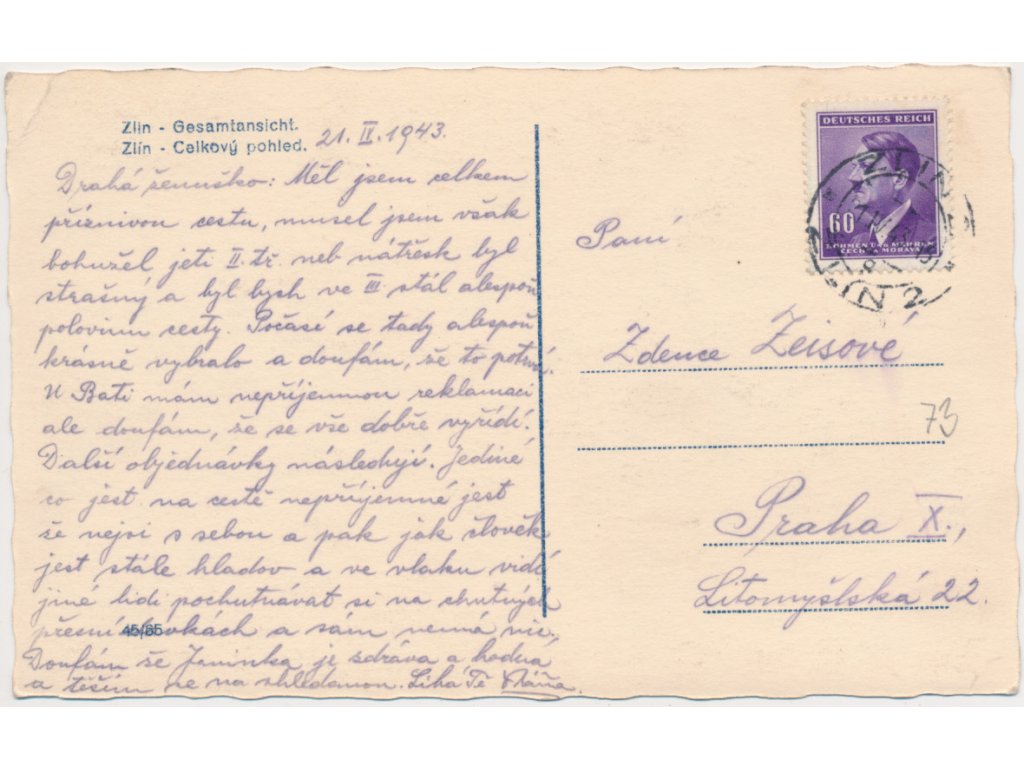 Zlin - Gesamtansicht.
Zlín - Celkový pohled.
21. IV. 1943.
Drahá ženuško: Měl jsem celkem
příznivou cestu, musel jsem však
bohužel jeti II. tř. neb nátřesk byl
strašný a byl bych ve III. stál alespoň
polovinu cesty. Počasí se tady alespoň
krásně vybralo a doufám, že to potrvá.
U Bati mám nepříjemnou reklamaci
ale doufám, že se vše dobře vyřídí.
Další objednávky následují. Jediné
co jest na cestě nepříjemné jest
že nejsi s sebou a pak jak člověk
jest stále hladov a ve vlaku vidí
jiné lidi pochutnávat si na chutných
a sám nemá nic.
45/65
Doufám že Janinka je zdráva a hodná
a těším se na shledanou. Líbá Tě
DEUTSCHES REICH
60
BÖHMEN UND MÄHREN
ČECHY A MORAVA
ZLÍN
ZLIN
Paní
Zdence Zeisové
73
Praha X.,
Litomyšlská 22.